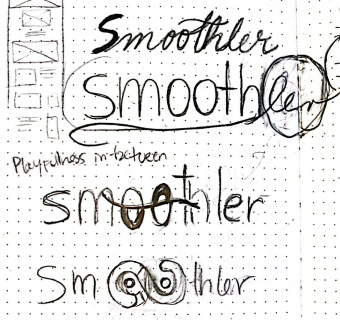 Smoothler
Smoothler
Playfulness in-between
smoothler
Smoothler